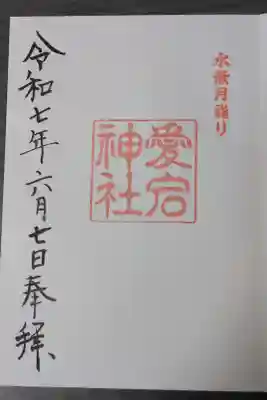 水無月詣り
愛宕
神社
令和七年六月七日奉拜